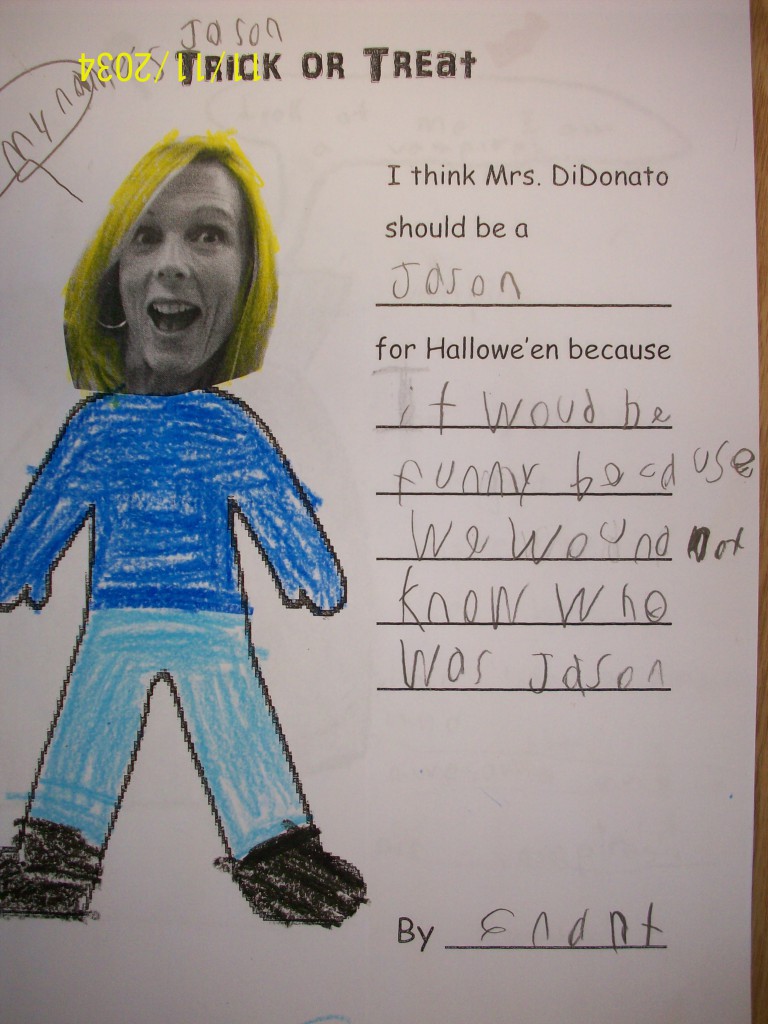 my name is Jason
11/11/2034
TRICK OR TREAT
I think Mrs. DiDonato
should be a
Jason
for Hallowe'en because
it woud be
funny because
we wound not
know who
was Jason
By